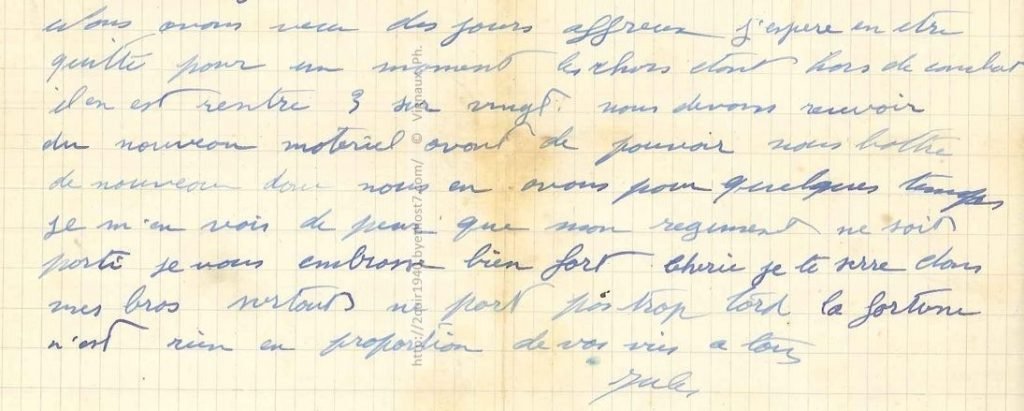 Nous avons vecu des jours affreux j'espere en etre
quitte pour un moment les chars etant hors de combat
il en est rentre 3 sur vingt. nous devons recevoir
du nouveau materiel avant de pouvoir nous battre
de nouveau donc nous en avons pour quelques temps
je m'en vais de peur que mon regiment ne soit
parti je vous embrasse bien fort cherie je te serre dans
mes bras surtout ne part pas trop tard la fortune
n'est rien en proportion de vos vies a tous
Jules
http://2cuir1940.byethost7.com/ © Vignaux Ph.